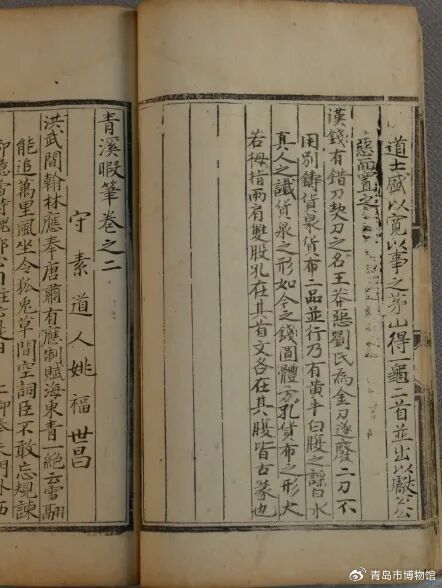 道士盛以寬以事之茅山得一龜二首並出以獻公
惡而置之
漢錢有錯刀契刀之名王莽惡劉氏為金刀遂廢二刀不
用別鑄貨泉貨布二品並行乃有黃牛白腹之謡白水
真人之讖貨泉之形如今之錢圓體方孔貨布之形大
若拇指兩肩雙股孔在其首文各在其腹皆古篆也
青溪暇筆卷之二
守素道人姚福世昌
洪武間翰林應奉唐肅有應制賦海東青一絕云雪翮
能追萬里風坐令狐兔草間空詞臣不敢忘規諫
@青岛市博物馆